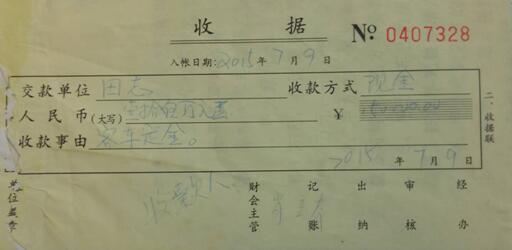 收 据 № 0407328
入帐日期:2015年7月9日
交款单位 田志 收款方式 现金
人民币(大写) ¥
收款事由 客车定金。
2015年7月9日
二、收据联
收款人
单位盖章 财会主管 记账 出纳 审核 经办